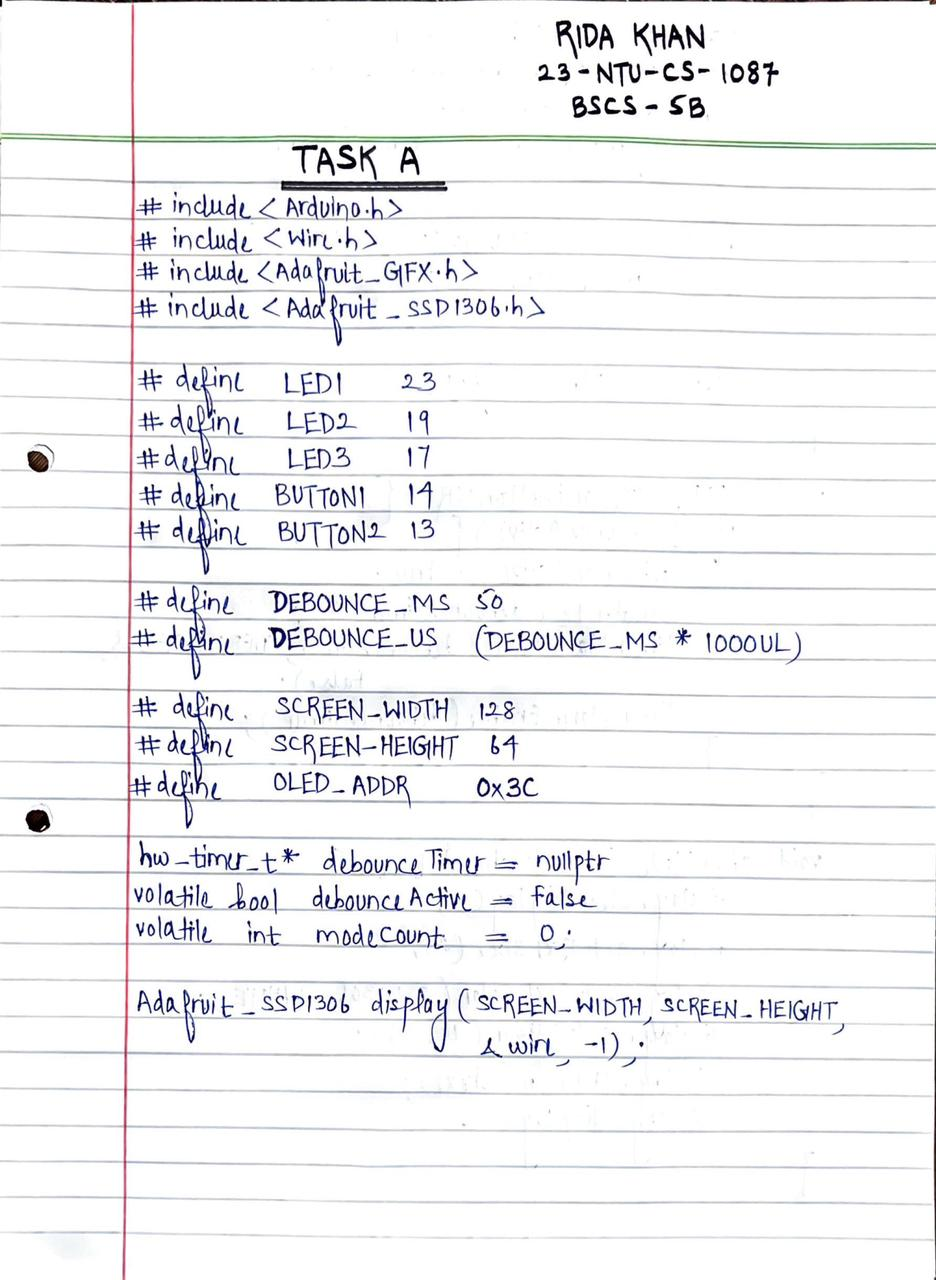 RIDA KHAN
23-NTU-CS-1087
BSCS-5B
TASK A
# include < Arduino.h>
# include <Wire.h>
# include <Adafruit_GFX.h>
# include <Adafruit_SSD1306.h>
# define LED1 23
# define LED2 19
# define LED3 17
# define BUTTON1 14
# define BUTTON2 13
# define DEBOUNCE_MS 50
# define DEBOUNCE_US (DEBOUNCE_MS * 1000UL)
# define SCREEN_WIDTH 128
# define SCREEN_HEIGHT 64
# define OLED_ADDR 0x3C
hw_timer_t* debounceTimer = nullptr
volatile bool debounceActive = false
volatile int modeCount = 0;
Adafruit_SSD1306 display (SCREEN_WIDTH, SCREEN_HEIGHT,
& wire, -1);